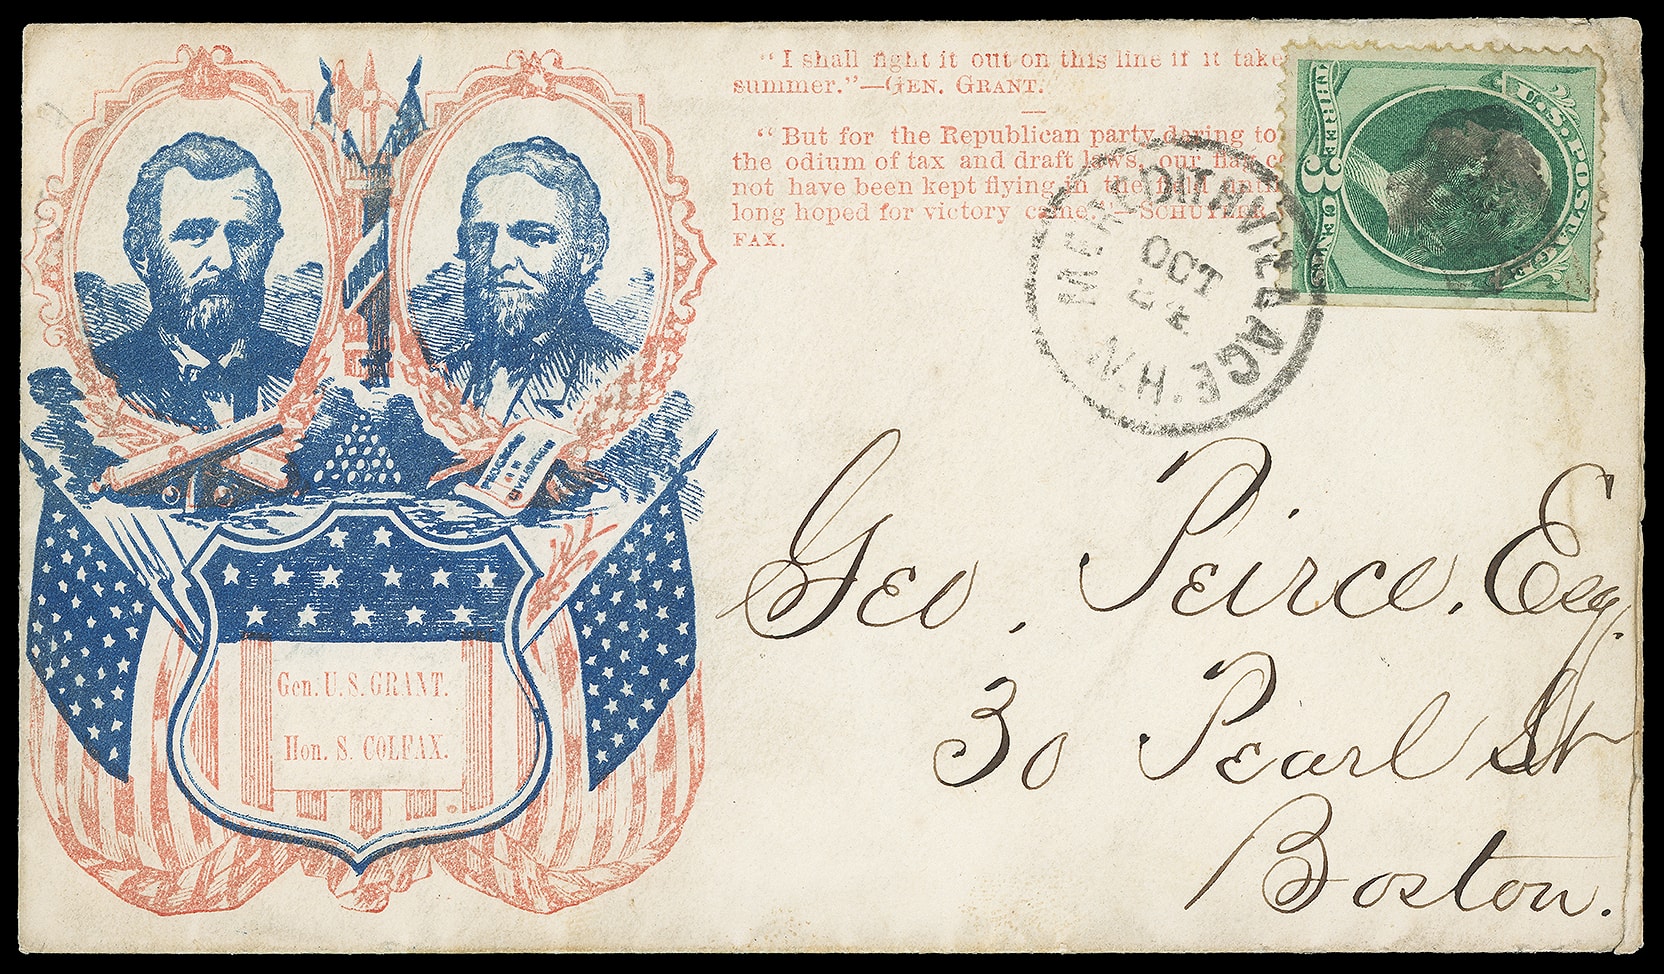 “I shall fight it out on this line if it take
summer.”—GEN. GRANT.
“But for the Republican party daring to
the odium of tax and draft laws, our flag
not have been kept flying in the field
long hoped for victory came.”—SCHUYLER
FAX.
U.S. POSTAGE
THREE 3 CENTS
MEREDITH VILLAGE
OCT
N.H.
UNION
Gen. U. S. GRANT.
Hon. S. COLFAX.
Geo. Peirce, Esq.
30 Pearl St
Boston.